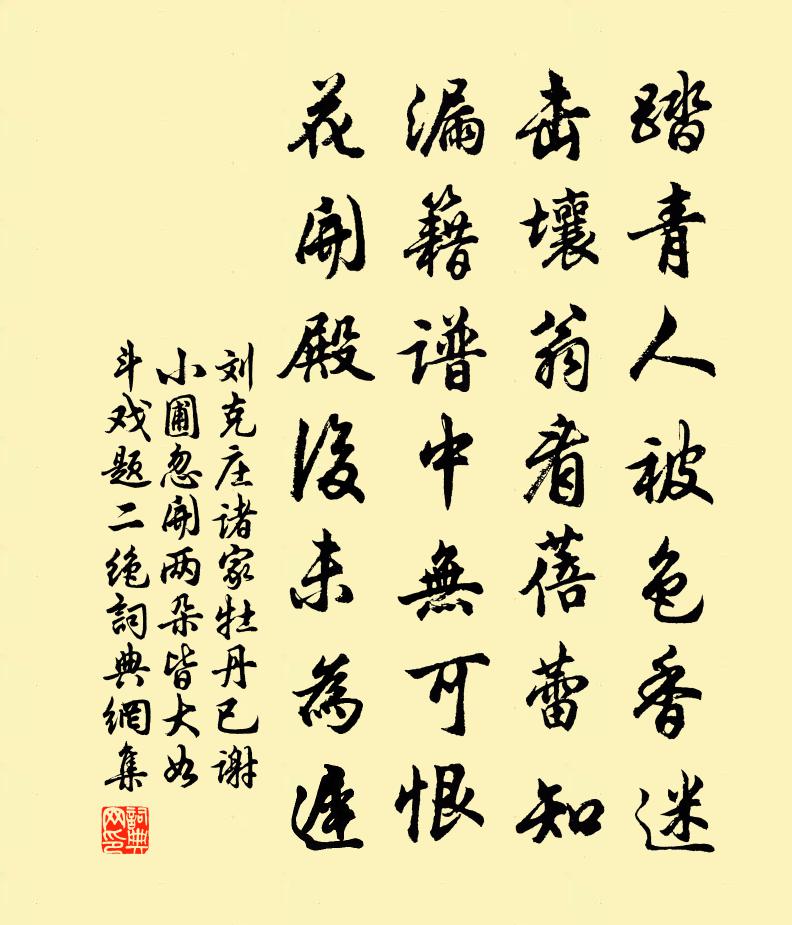 踏青人被色香迷
击壤翁看蓓蕾知
漏籍谱中無可恨
花開殿後未為遲
刘克庄诸家牡丹已谢
小圃忽開两朵皆大如
斗戏题二绝詞典網集
詞典网印